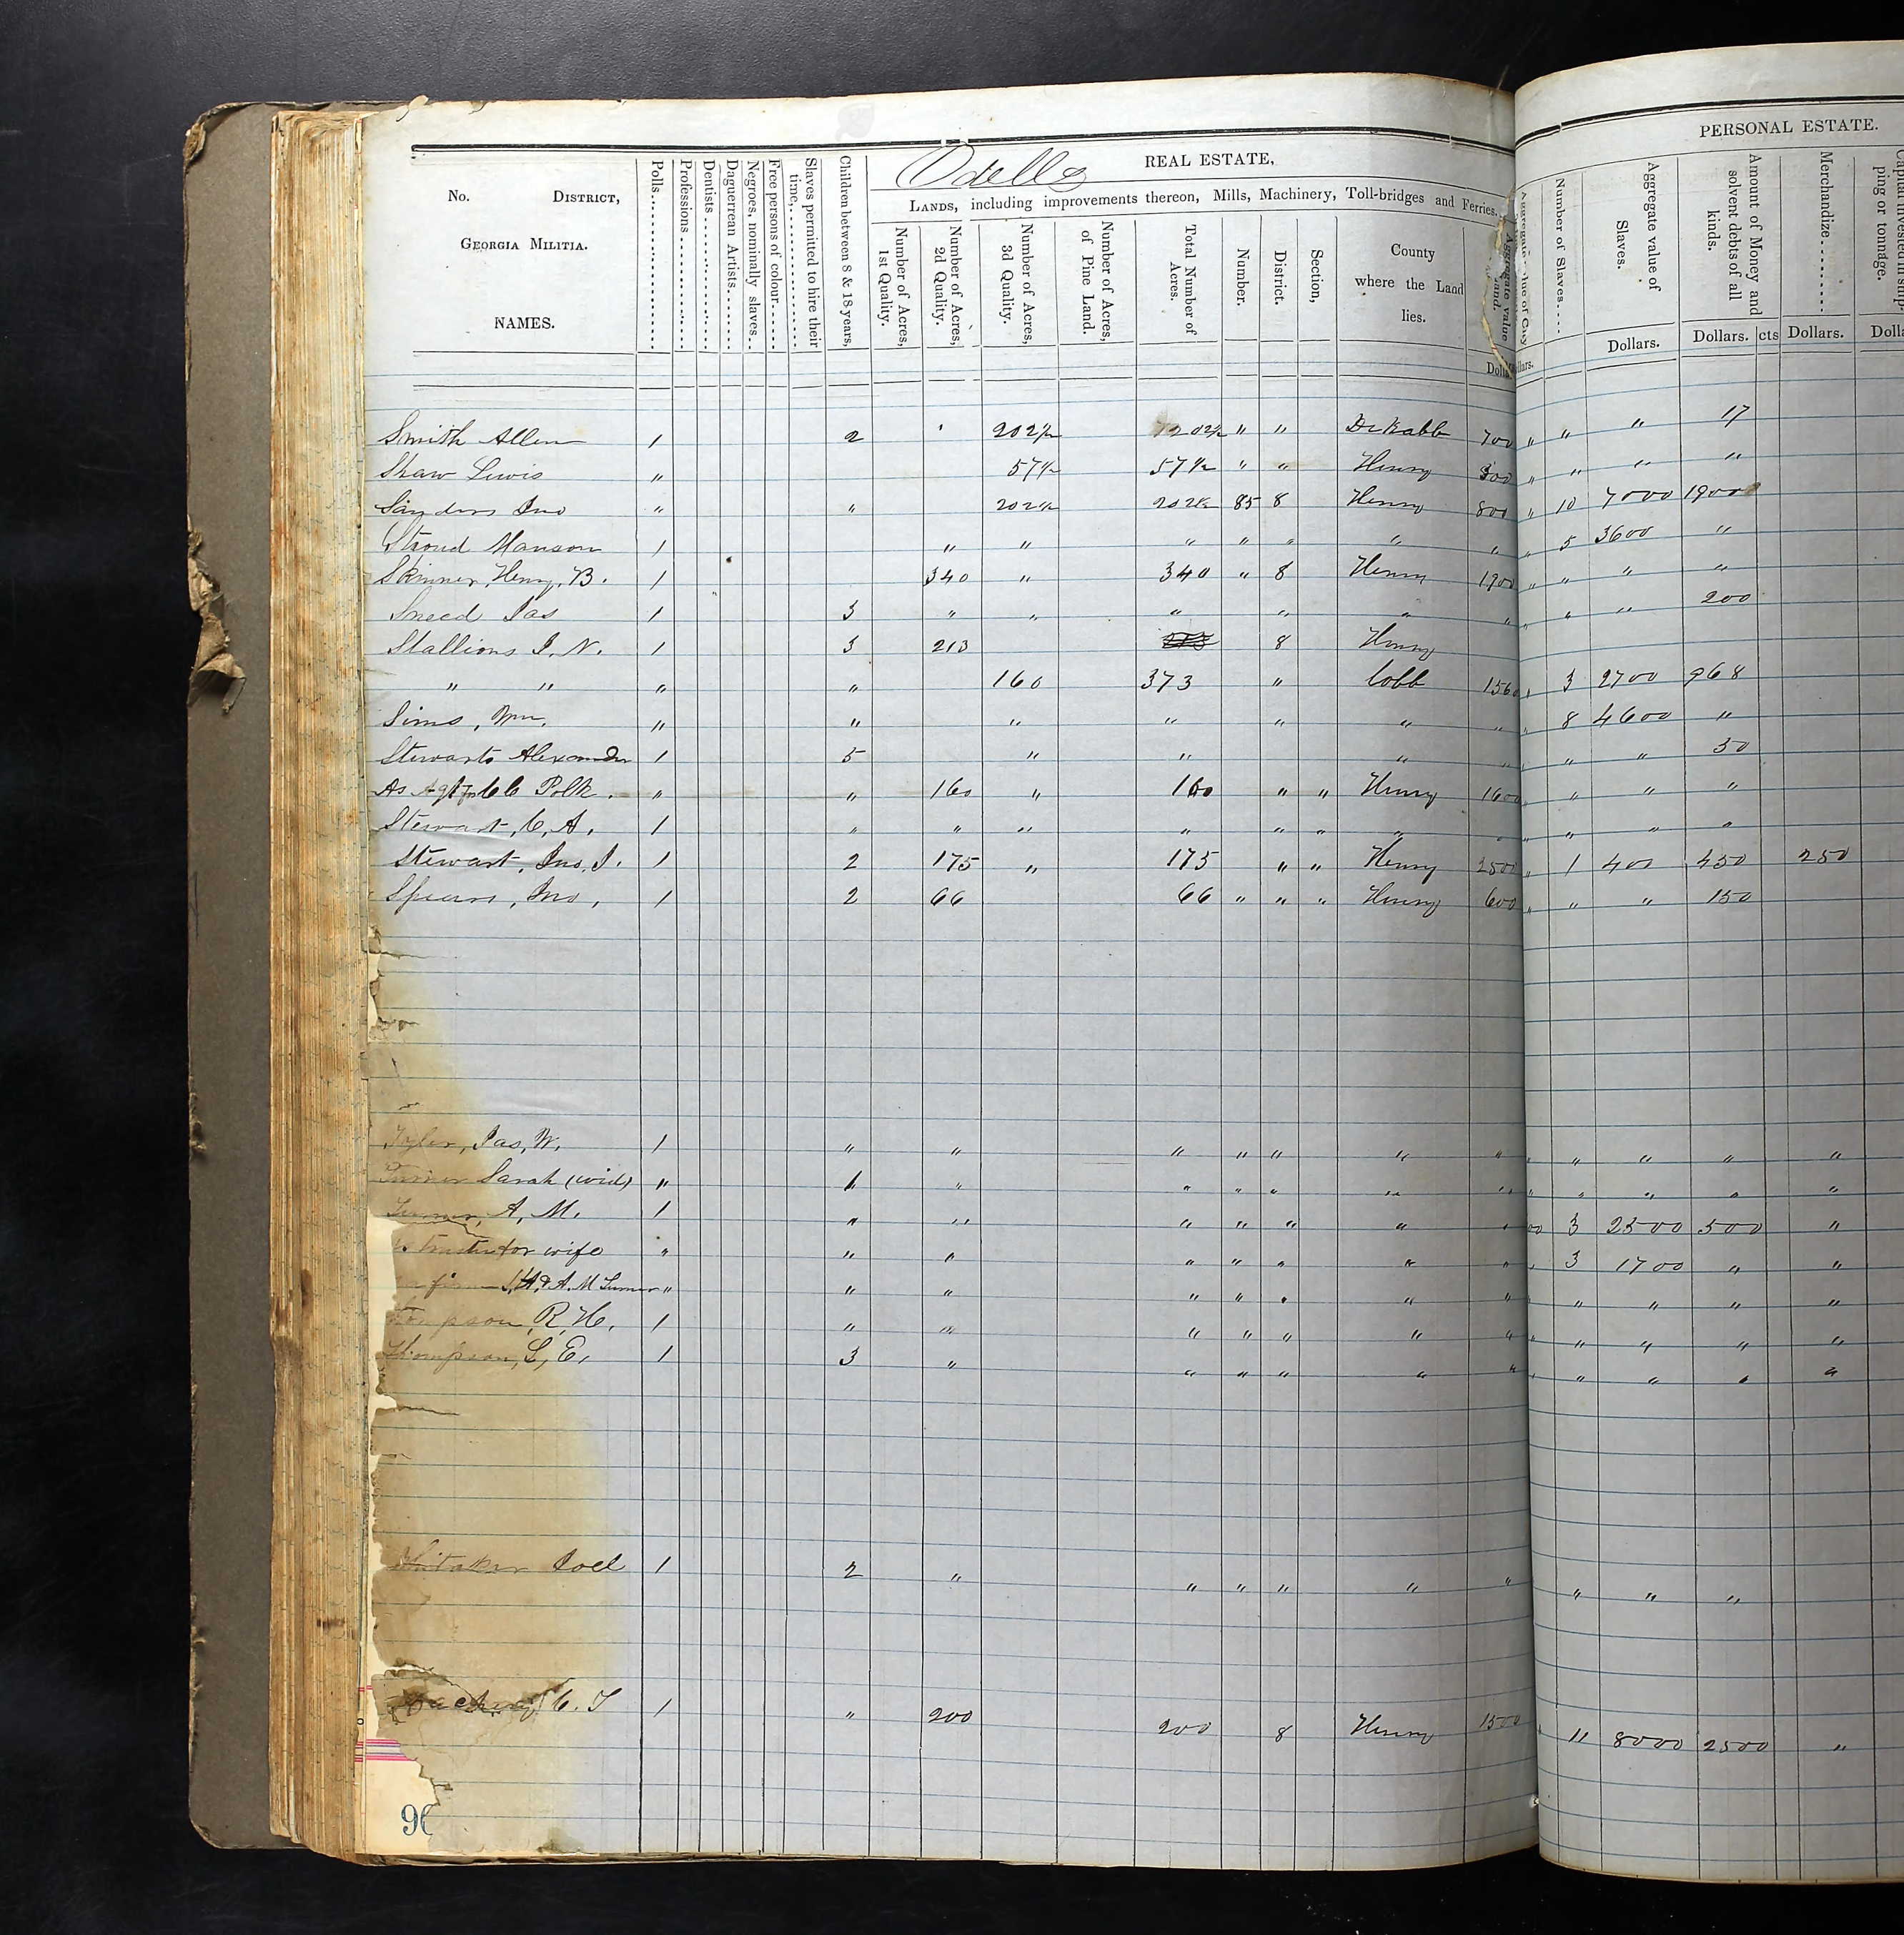 Odells
REAL ESTATE,
PERSONAL ESTATE.
No. DISTRICT,
GEORGIA MILITIA.
NAMES.
Polls
Professions
Dentists
Daguerrean Artists
Negroes, nominally slaves
Free persons of colour
Slaves permitted to hire their time,
Children between 8 & 18 years,
LANDS, including improvements thereon, Mills, Machinery, Toll-bridges and Ferries.
Number of Acres, 1st Quality.
Number of Acres, 2d Quality.
Number of Acres, 3d Quality.
Number of Acres, of Pine Land.
Total Number of Acres.
Number.
District.
Section,
County where the Land lies.
Aggregate value Land.
Number of Slaves
Aggregate value of Slaves.
Amount of Money and solvent debts of all kinds.
Merchandize
Dollars. Dollars. cts Dollars.
Smith Allen 1 2 202½ 202½ " " DeKalb 700 " " " 17
Shaw Lewis " 57½ 57½ " " Henry 300 " " " "
Sanders Jno " " 202½ 202½ 85 8 Henry 800 " 10 7000 1900
Stroud Manson 1 " " " " " " " " 5 3600 "
Skinner, Henry, B. 1 340 " 340 " 8 Henry 1900 " " " "
Sneed Jas 1 3 " " " " " " " " " 200
Stallions J. N. 1 3 213 8 Henry
" " " " 160 373 " Cobb 1560 " 3 2700 968
Sims, Wm. " " " " " " " " 8 4600 "
Stewarts Alexander 1 5 " " " " " " " 50
As Agt for CC Polk. " " 160 " 160 " " Henry 1600 " " " "
Stewart, C, A, 1 " " " " " " " " " " " "
Stewart, Jno, J. 1 2 175 " 175 " " Henry 2500 " 1 400 450 250
Spears, Jno, 1 2 66 66 " " " Henry 600 " " " 150
Tyler, Jas, W. 1 " " " " " " " " " " " "
Turner Sarah (wid) " 1 " " " " " " " " " " "
Turner, A, M. 1 " " " " " " " 00 3 2500 500 "
Trustee for wife " " " " " " " " " 3 1700 " "
& A. M Turner " " " " " " " " " " " "
Thompson, R, H, 1 " " " " " " " " " " " "
Thompson, S, E, 1 3 " " " " " " " " " " "
Whitaker Joel 1 2 " " " " " " " " "
C. T 1 " 200 200 8 Henry 1500 " 11 8000 2500 "